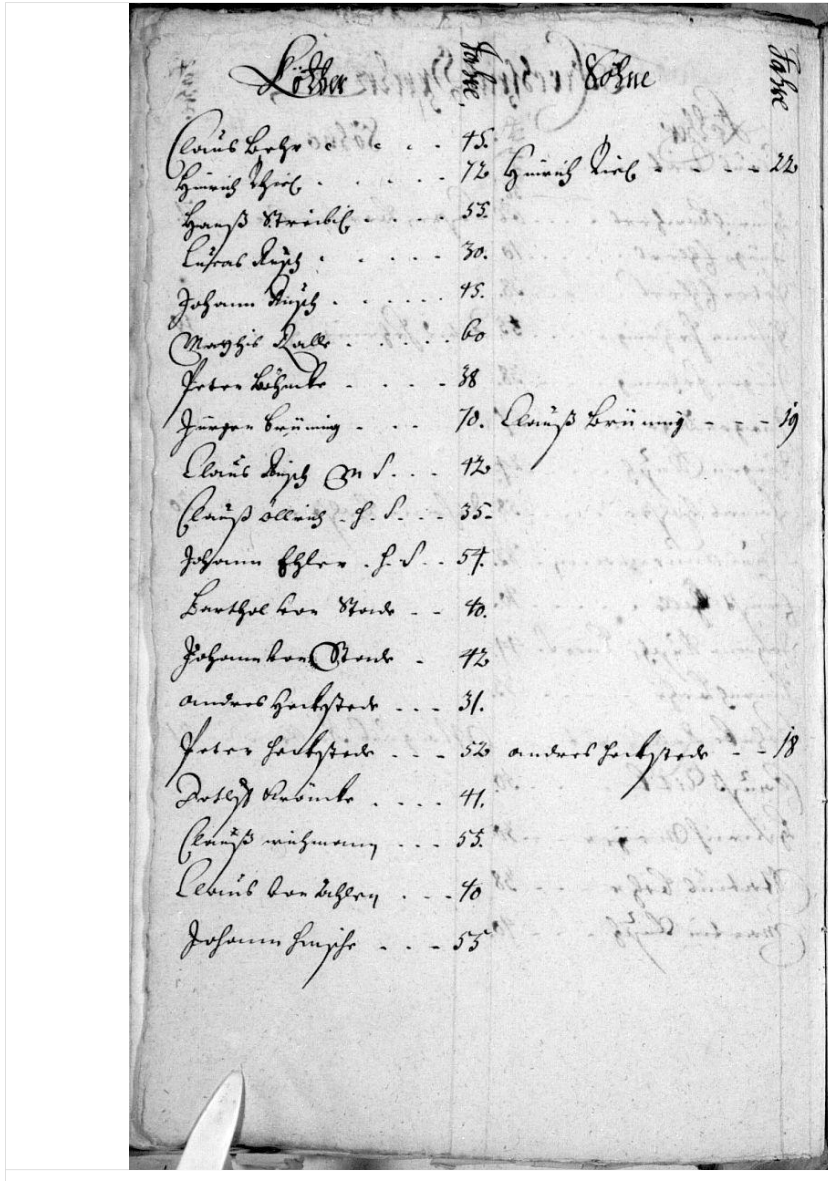 Köther Jahre Söhne Jahre
Claus Behr 45.
Hinrich Thiel 72 Hinrich Tiel 22
Hanß 55.
Lucas Rusch 30.
Johann Rusch 45.
Matthis Kalls 60
Peter Böhncke 38
Jürgen Brüning 70. Clauß Brüning 19
Claus Rusch M S. 42
Clauß Öllrich . H. S. 35.
Johann Ehler . H. S. 54.
Barthol von Stade 40.
Johann von Stade 42
andres Heckstede 31.
Peter Heckstede 52 andres Heckstede 18
Detleff Kröncke 41.
Clauß wichmann 55.
Claus von 40
Johann Hinsche 55